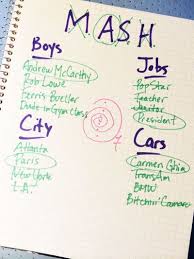 M.A.S.H.
Boys
Andrew McCarthy
Rob Lowe
Ferris Bueller
Dude in Gym Class
Jobs
Pop Star
Teacher
Janitor
President
City
Atlanta
Paris
New York
L.A.
7
Cars
Carmen Ghia
TransAm
BMW
Bitchin' Camaro